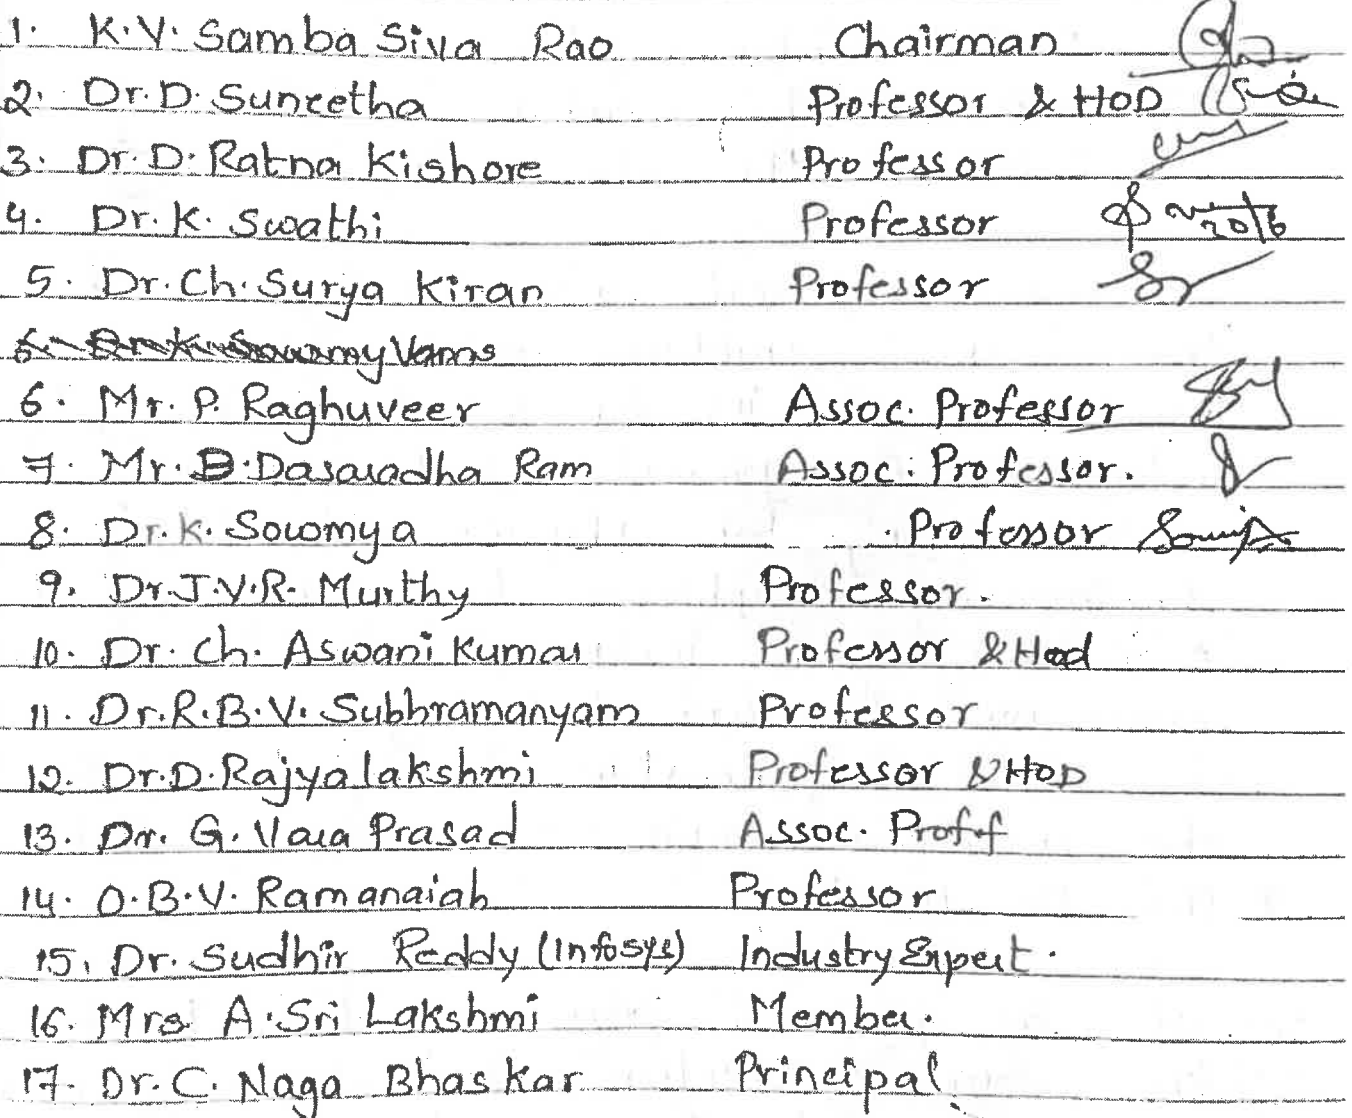 1. K.V. Samba Siva Rao Chairman
2. Dr. D. Suneetha Professor & HOD
3. Dr. D. Ratna Kishore Professor
4. Dr. K. Swathi Professor 20/6
5. Dr. Ch. Surya Kiran Professor
6. Mr. P. Raghuveer Assoc. Professor
7. Mr. D. Dasaradha Ram Assoc. Professor.
8. Dr. K. Sowmya Professor
9. Dr. J.V.R. Murthy Professor.
10. Dr. Ch. Aswani Kumar Professor & Hod
11. Dr. R.B.V. Subhramanyam Professor
12. Dr. D. Rajyalakshmi Professor & HOD
13. Dr. G. Vara Prasad Assoc. Proff
14. O.B.V. Ramanaiah Professor
15. Dr. Sudhir Reddy (Infosys) Industry Expert.
16. Mrs. A. Sri Lakshmi Member.
17. Dr. C. Naga Bhaskar Principal